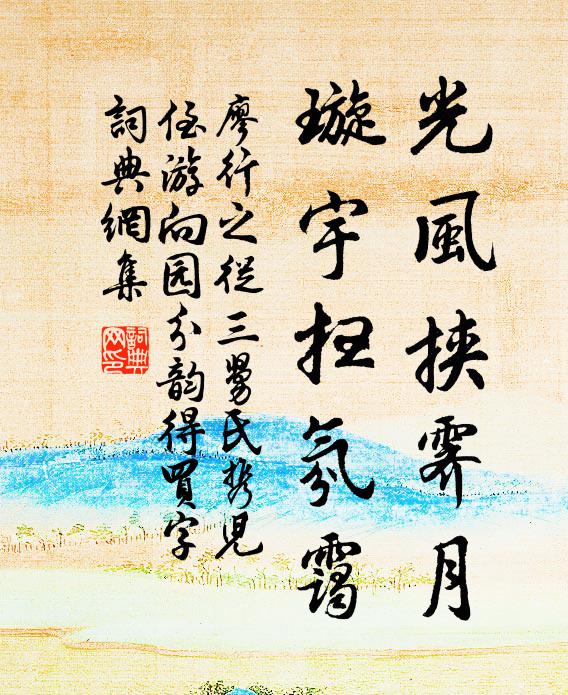 光風挾霽月
璇宇扫氛靄
廖行之從三舅氏携児
侄游向园分韵得買字
詞典網集
詞典
网印